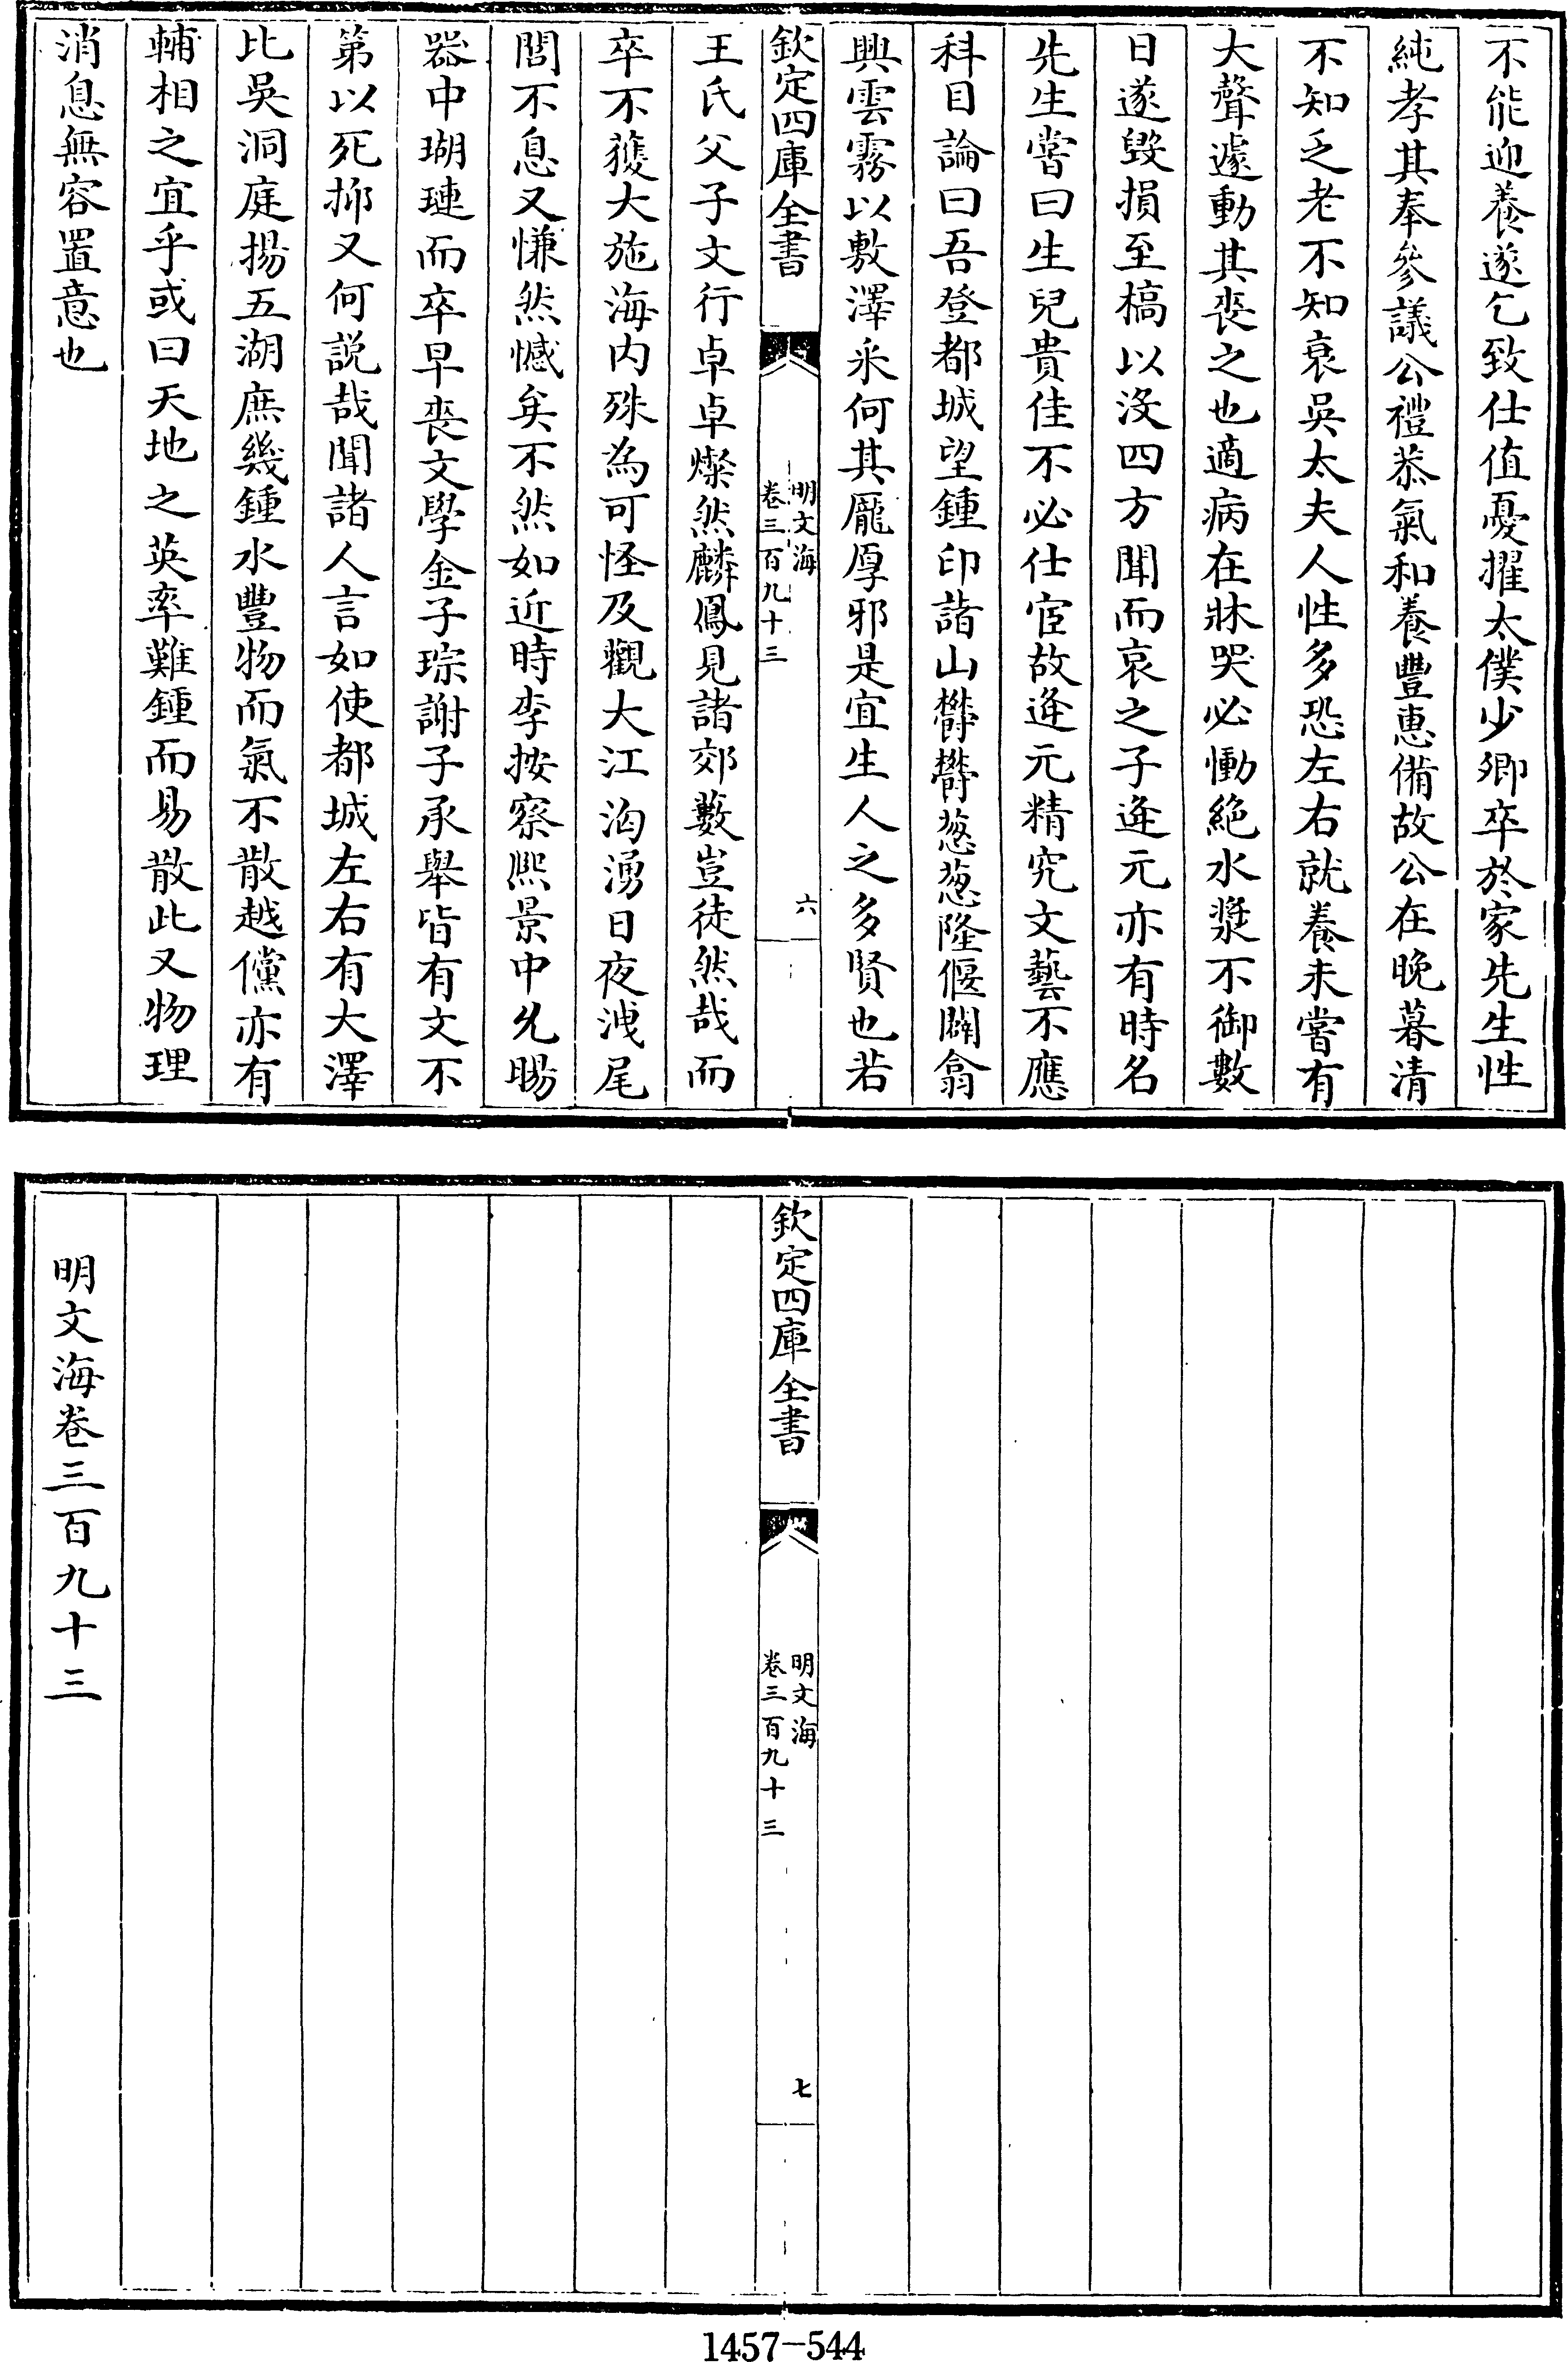 不能迎養遂乞致仕值憂擢太僕少卿卒於家先生性
純孝其奉參議公禮恭氣和養豐惠備故公在晚暮清
不知乏老不知衰吳太夫人性多恐左右就養未嘗有
大聲遽動其喪之也適病在牀哭必慟絕水漿不御數
日遂毀損至槁以沒四方聞而哀之子逄元亦有時名
先生嘗曰生兒貴佳不必仕宦故逄元精究文藝不應
科目論曰吾登都城望鍾印諸山欝欝葱葱隆偃闢翕
興雲霧以敷澤永何其龎厚邪是宜生人之多賢也若
欽定四庫全書
明文海
卷三百九十三
六
王氏父子文行卓卓燦然麟鳳見諸郊藪豈徒然哉而
卒不獲大施海内殊為可怪及觀大江洶湧日夜洩尾
閭不息又慊然憾矣不然如近時李按察熙景中允暘
器中瑚璉而卒早喪文學金子琮謝子承舉皆有文不
第以死抑又何説哉聞諸人言如使都城左右有大澤
比吳洞庭揚五湖庶幾鍾水豐物而氣不散越儻亦有
輔相之宜乎或曰天地之英率難鍾而易散此又物理
消息無容置意也
欽定四庫全書
明文海
卷三百九十三
七
明文海卷三百九十三
1457-544